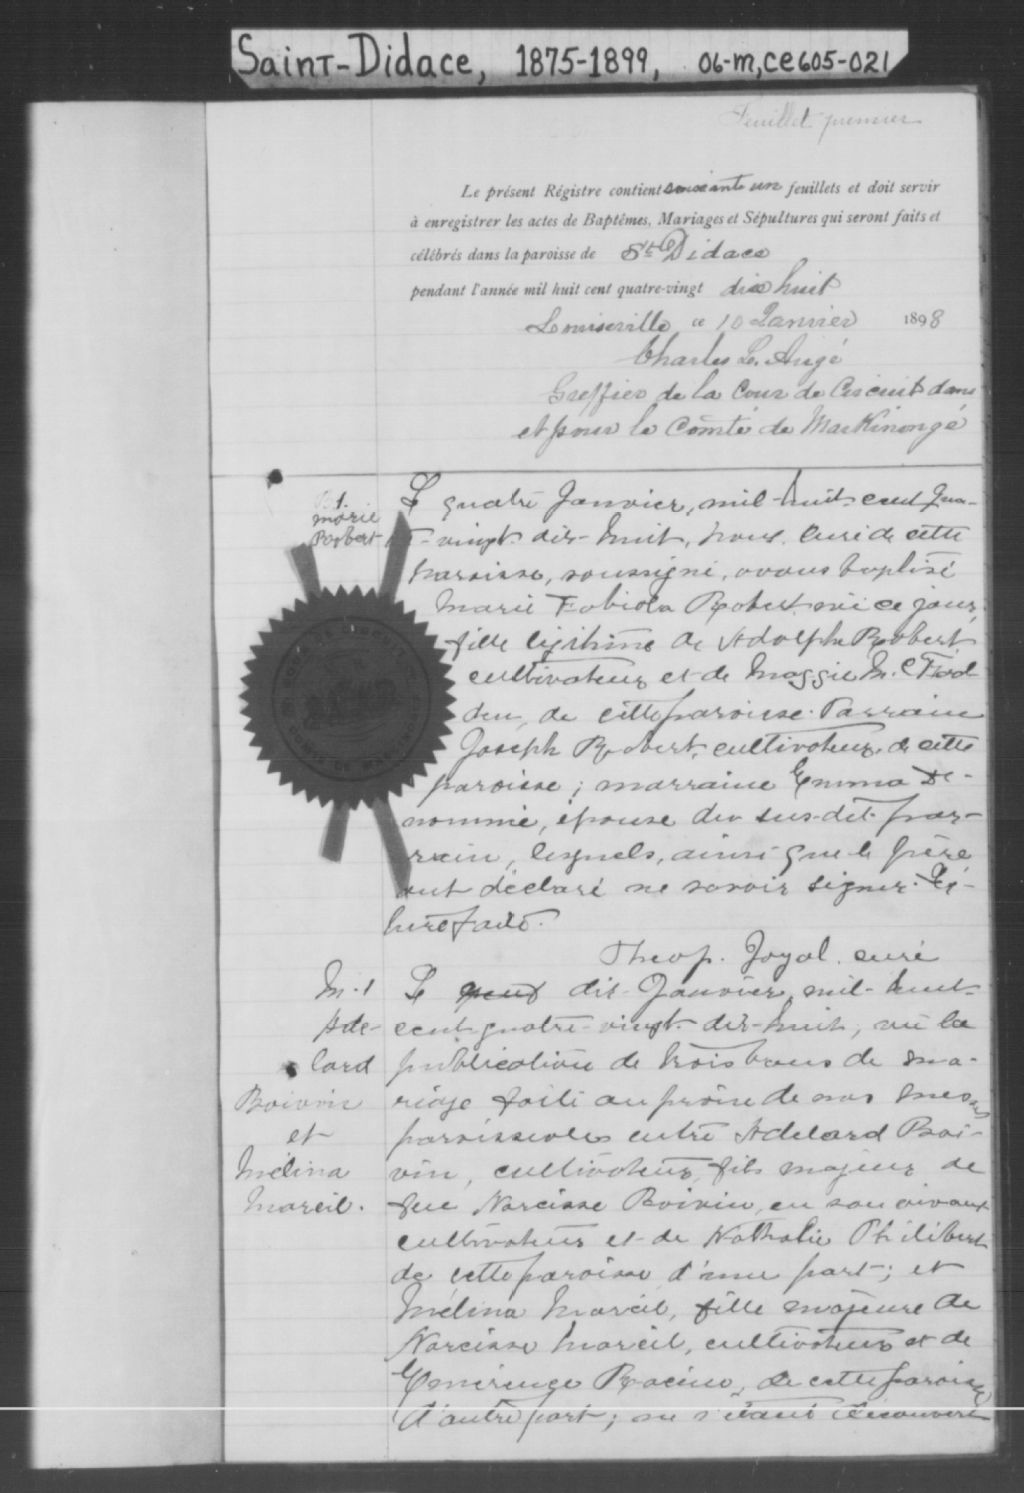 Saint-Didace, 1875-1899, 06-M,CE605-021
Feuillet premier
Le présent Régistre contient soixante un feuillets et doit servir
à enregistrer les actes de Baptêmes, Mariages et Sépultures qui seront faits et
célébrés dans la paroisse de St Didace
pendant l'année mil huit cent quatre-vingt dix huit
Louiseville ce 10 Janvier 1898
Charles L. Augé
Greffier de la Cour de Circuit dans
et pour le Comté de Maskinongé
B.1.
Marie
Robert
Le quatre Janvier, mil-huit cent qua-
tre-vingt-dix-huit, nous, curé de cette
paroisse, soussigné, avons baptisé
Marie Fabiola Robert née ce jour,
fille légitime de Adolphe Robert
cultivateur et de Maggie
de cette paroisse. Parrain
Joseph Robert, cultivateur de cette
paroisse; marraine Emma De-
nommé, épouse du sus-dit par-
rain, lesquels, ainsi que le père
ont déclaré ne savoir signer. Le-
cture faite.
Theop. Joyal, curé
M.1
Adé-
lard
Boivin
et
Mélina
Mareil.
Le dix Janvier, mil-huit-
cent-quatre-vingt-dix-huit, vu la
publication de trois bans de ma-
riage faite au prône de nos messes
paroissiales entre Adelard Boi-
vin, cultivateur, fils majeur de
feu Narcisse Boivin, en son vivant
cultivateur et de Nathalie Philibert
de cette paroisse d'une part; et
Mélina Mareil, fille majeure de
Narcisse Mareil, cultivateur et de
Emérence Racine, de cette paroisse
d'autre part; ne s'étant découvert